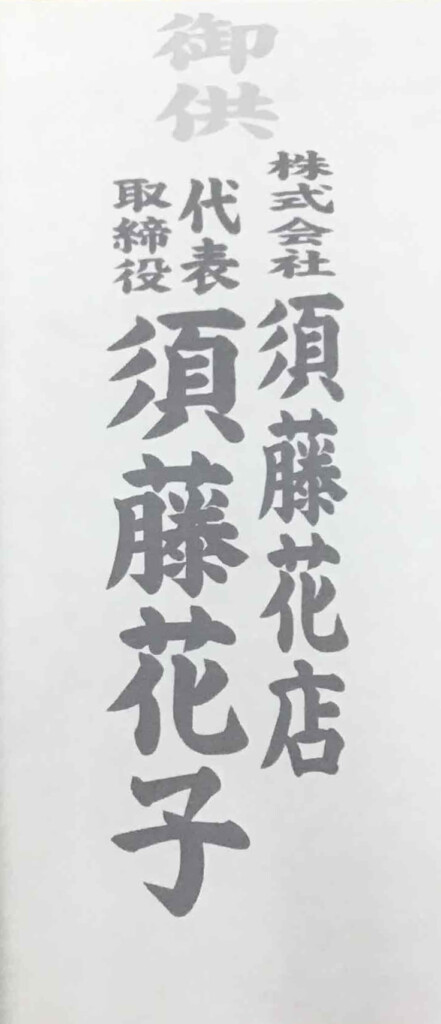 御供
株式会社 須藤花店
代表
取締役
須藤花子